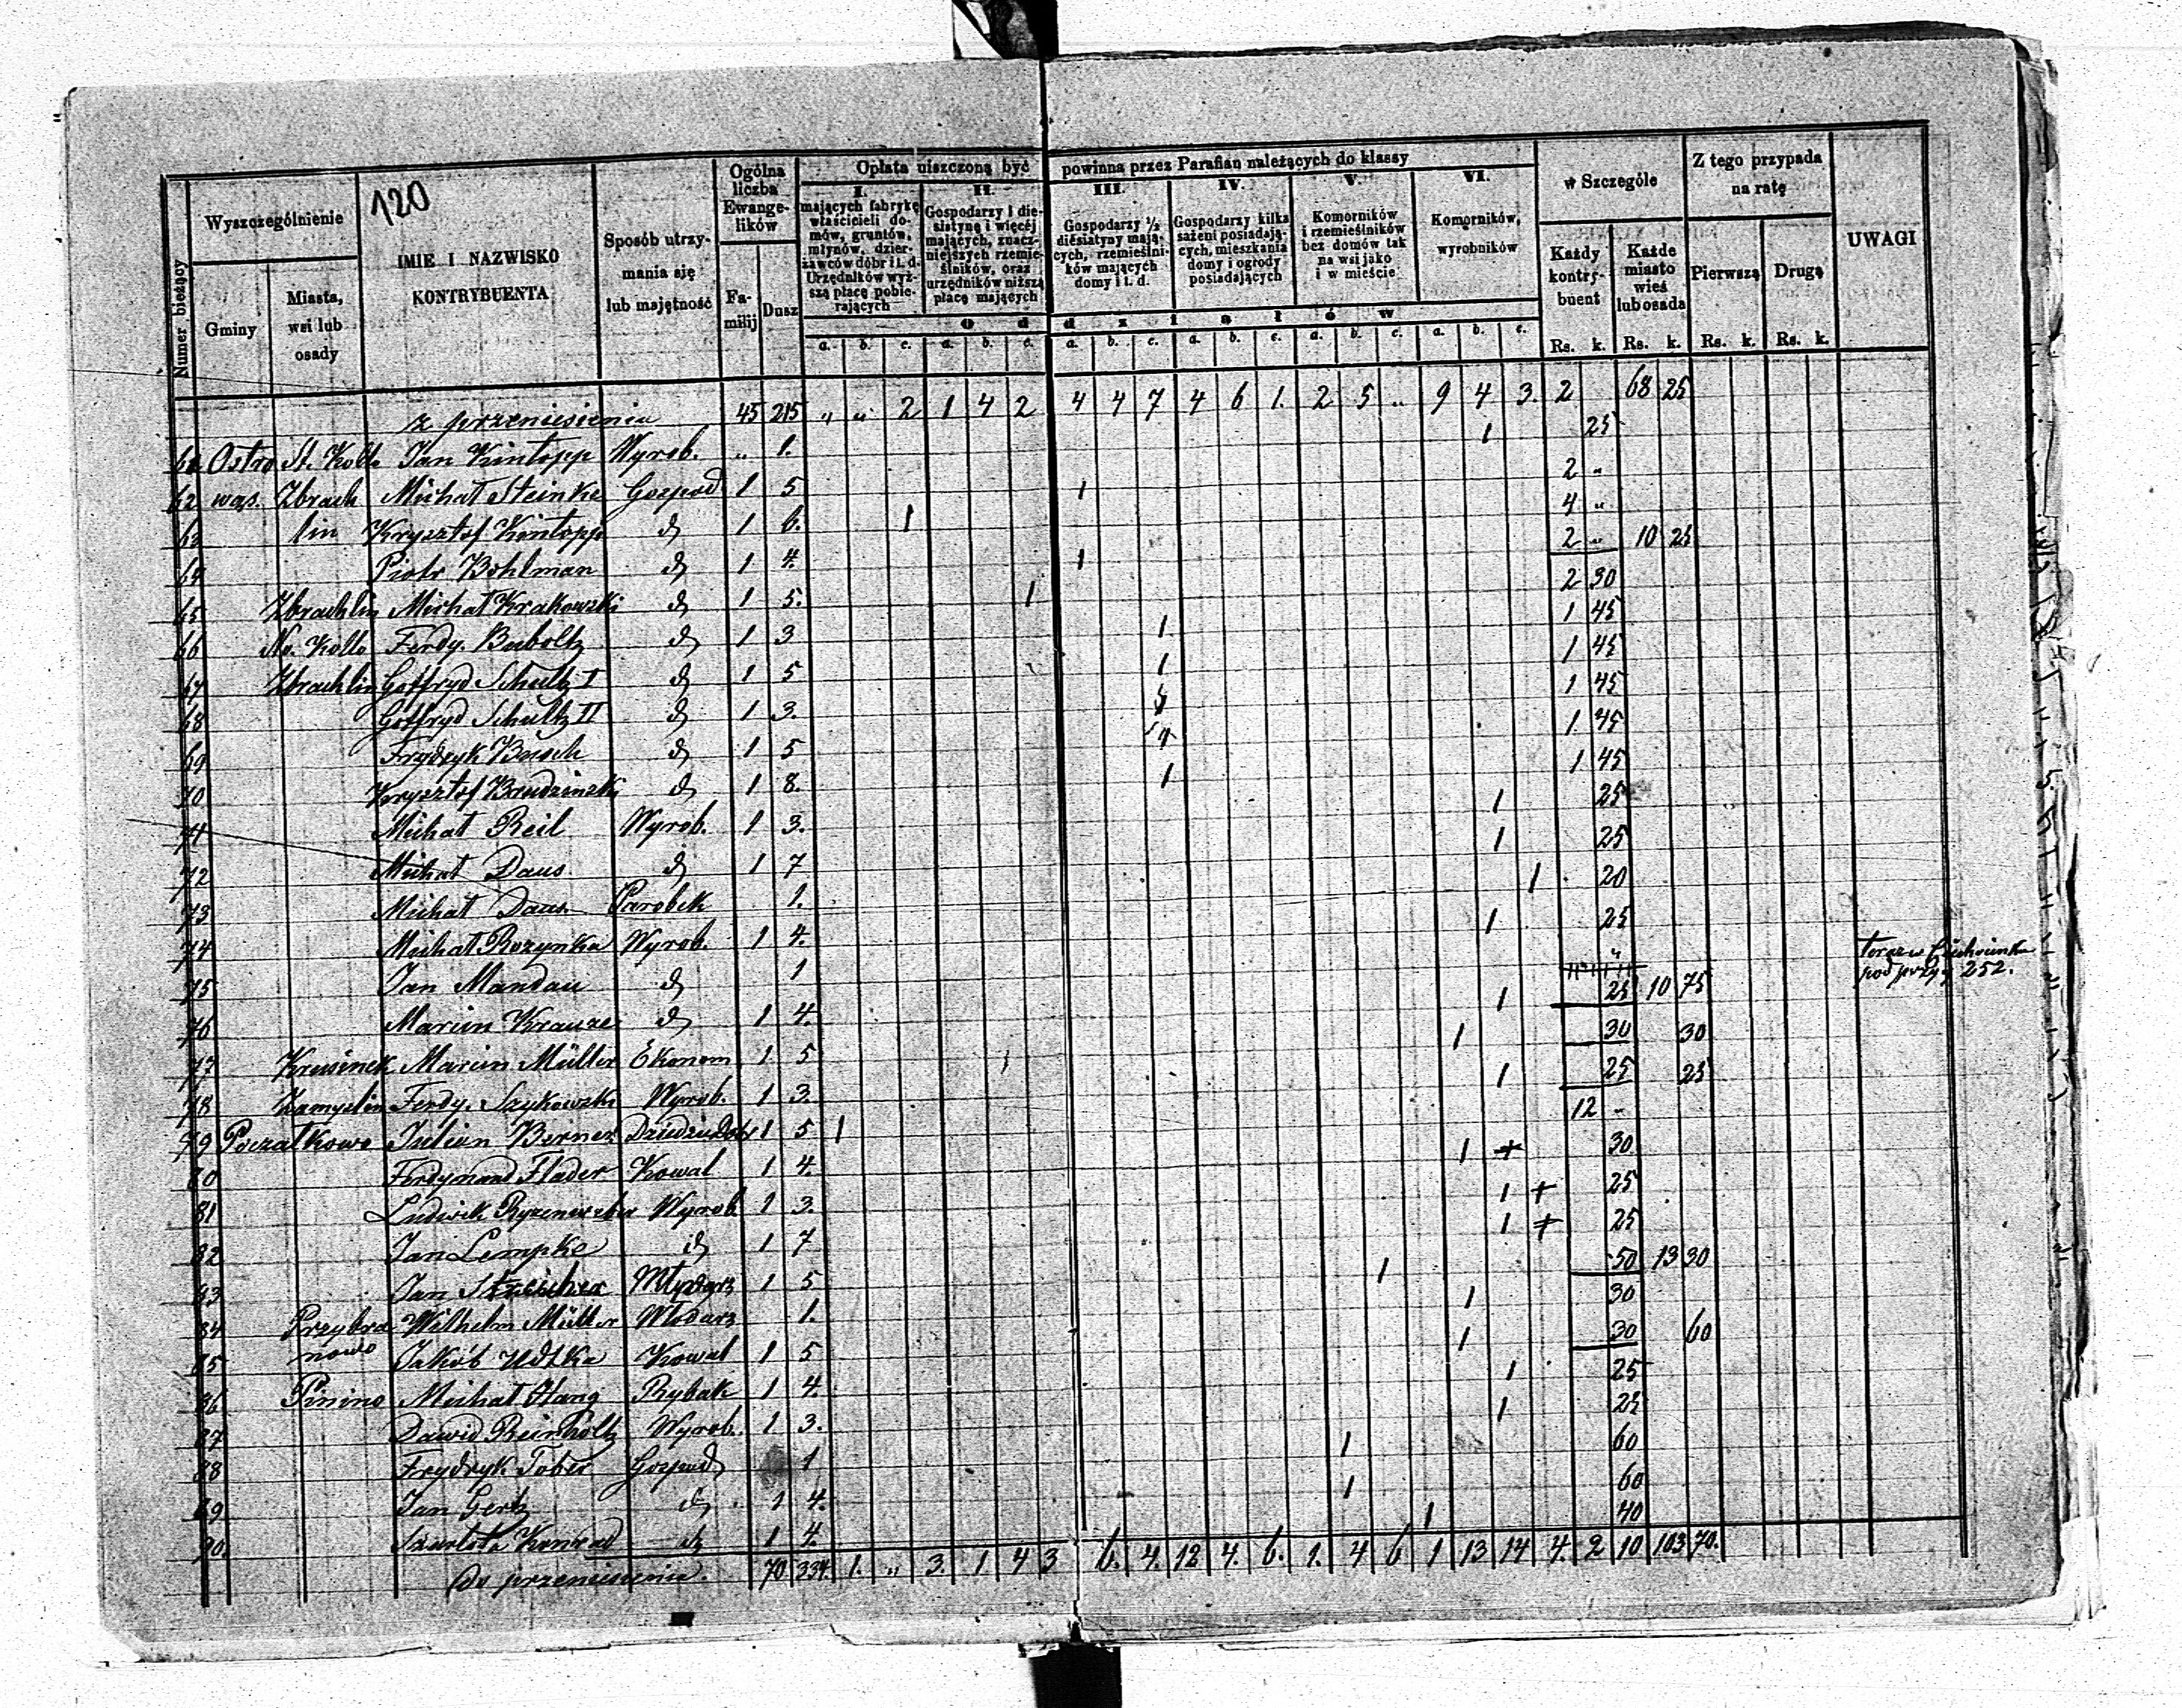 120
Numer bieżący
Wyszczególnienie
Gminy
Miasta, wsi lub osady
IMIE I NAZWISKO KONTRYBUENTA
Sposób utrzymania się lub majętność
Ogólna liczba Ewangelików
Familij Dusz
Opłata uiszczoną być powinna przez Parafian należących do klassy
I. mających fabrykę właścicieli domów, gruntów, młynów, dzierżawców dóbr i t. d. Urzędników wyższą płacę pobierających
II. Gospodarzy 1 diesiatynę i więcej mających, znaczniejszych rzemieślników, oraz urzędników niższą płacę mających
III. Gospodarzy ½ diesiatyny mających, rzemieślników mających domy i t. d.
IV. Gospodarzy kilka sażeni posiadających, mieszkania domy i ogrody posiadających
V. Komorników i rzemieślników bez domów tak na wsi jako i w mieście
VI. Komorników, wyrobników
o d d z i a ł ó w
a. b. c. a. b. c. a. b. c. a. b. c. a. b. c. a. b. c.
w Szczególe
Każdy kontrybuent
Każde miasto wieś lub osada
Z tego przypada na ratę
Pierwszą Drugą
Rs. k. Rs. k. Rs. k. Rs. k.
UWAGI
z przeniesienia 45 215 „ „ 2 1 4 2 4 4 7 4 6 1. 2 5 „ 9 4 3. 2 68 25
61 Ostro St. Kolto Jan Kintopp Wyrob. „ 1. 1 25
62 wąs. Zbrach Michał Steinke Gospod 1 5 1 2 „
63 lin Krysztof Kintopp d 1 6. 1 4 „
64 Piotr Bohlman d 1 4. 1 2 „ 10 25
65 Zbrachlin Michał Krakowski d 1 5. 1 2 30
66 No. Kolto Ferdy. Buboltz d 1 3 1 1 45
67 Zbrachlin Goffryd Schultz I d 1 5 1 1 45
68 Goffryd Schultz II d 1 3. 1 45
69 Frydryk Busch d 1 5 1 45
70 Krysztof Brudzinski d 1 8. 1 1 45
71 Michał Reil Wyrob. 1 3. 1 25
72 Michał Daus d 1 7 1 25
73 Michał Daus Parobek 1. 1 20
74 Michał Rozynka Wyrob. 1 4. 1 25
75 Jan Mandau d 1 „ pod 252.
76 Marcin Krauze d 1 4. 1 25 10 75
77 Krusinek Marcin Müller Ekonom 1 5 1 30 30
78 Zamyslin Ferdy. Szykowski Wyrob. 1 3. 1 25 25
79 Poczałkowo Julian Berner 1 5 1 12 „
80 Ferdynand Flader Kowal 1 4. 1 + 30
81 Ludwik Wyrob 1 3. 1 + 25
82 Jan Lempke d 1 7 1 + 25
83 Jan Streicher Młynarz 1 5 1 50 13 30
84 Przybra Wilhelm Müller Włodarz 1. 1 30
nowo
85 Jakób Udtka Kowal 1 5 1 30 60
86 Pinino Michał Hang Rybak 1 4. 1 25
87 Dawid Reinholtz Wyrob. 1 3. 1 25
88 Frydryk Tober Gospod 1 1 60
89 Jan Gertz d 1 4. 1 60
90. Szarlota Konrad d 1 4. 1 40
Do przeniesienia. 70 334. 1. „ 3. 1 4 3 6. 4. 12 4. 6. 1. 4 6 1 13 14 4. 2 10 103 70.